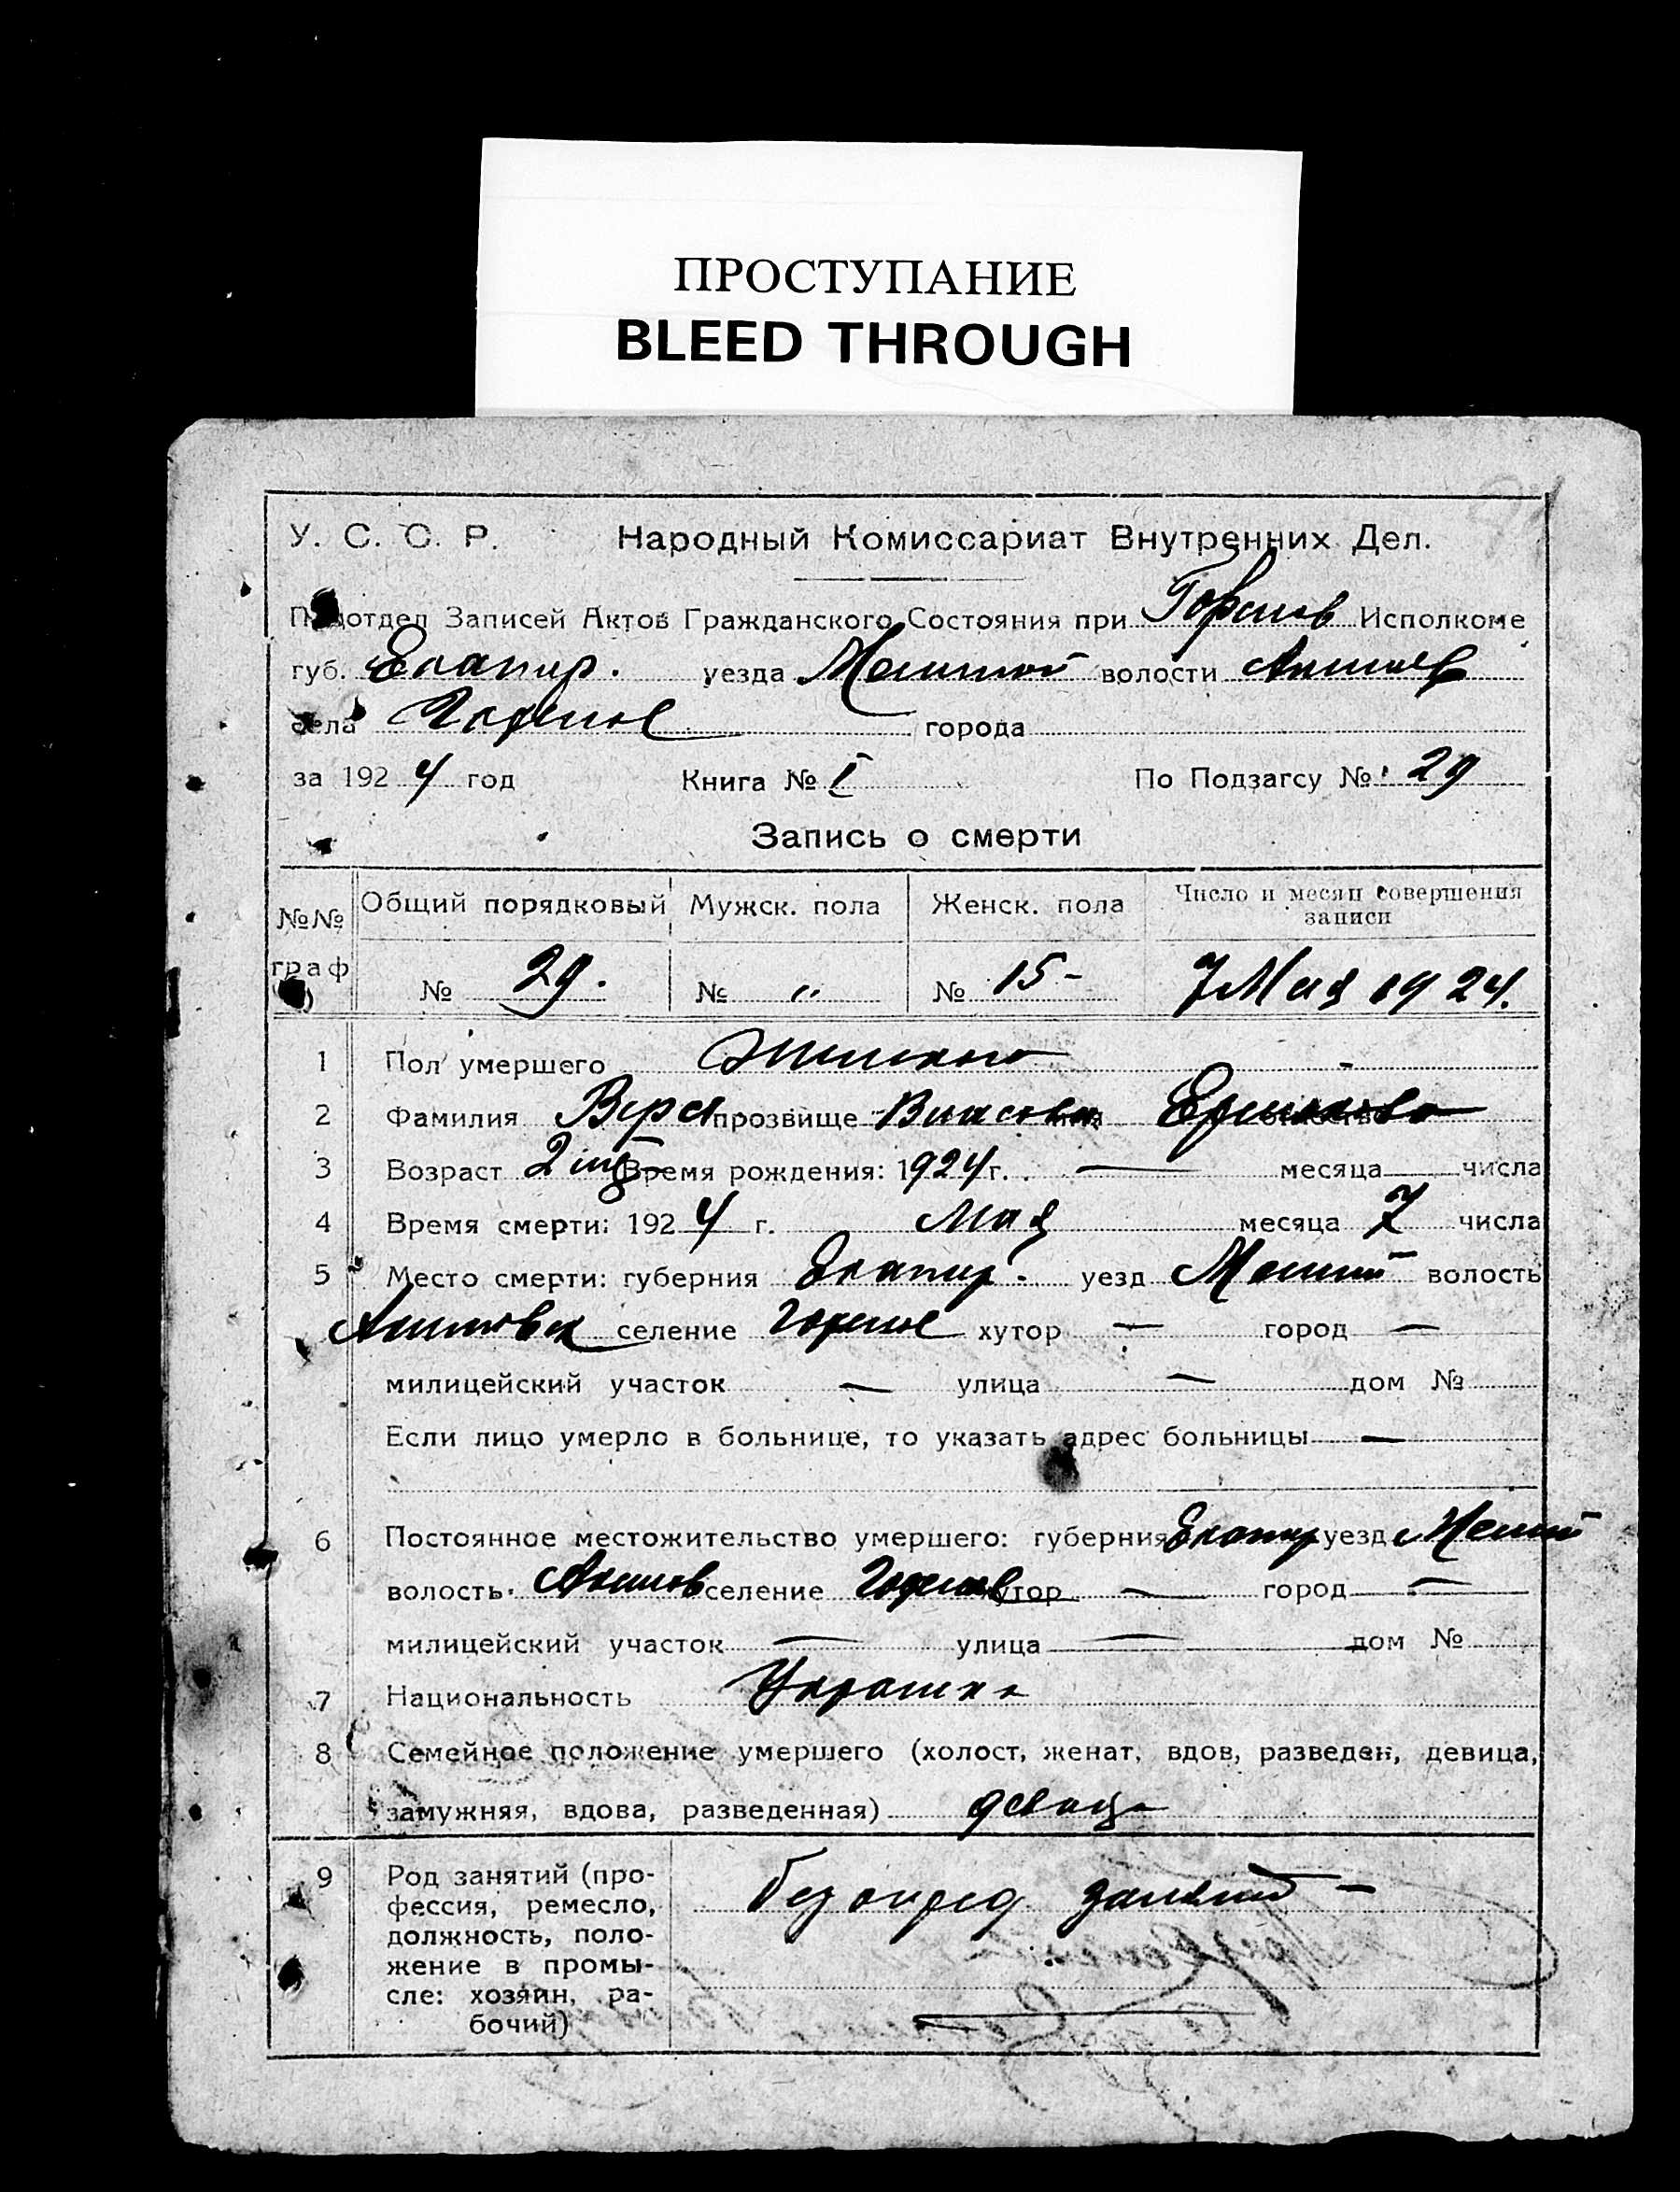 ПРОСТУПАНИЕ
BLEED THROUGH
У. С. С. Р. Народный Комиссариат Внутренних Дел.
Подотдел Записей Актов Гражданского Состояния при Исполкоме
губ. Екатир. уезда волости
села города
за 1924 год Книга № I По Подзагсу № 29
Запись о смерти
№№ граф Общий порядковый Мужск. пола Женск. пола Число и месяц совершения записи
№ 29. № " № 15- 7 Мая 1924.
1 Пол умершего
2 Фамилия Вера прозвище Власовна Ермакова
3 Возраст 2 Время рождения: 1924 г. — месяца числа
4 Время смерти: 1924 г. Мая месяца 7 числа
5 Место смерти: губерния Екатир. уезд волость
селение хутор — город —
милицейский участок — улица — дом №
Если лицо умерло в больнице, то указать адрес больницы —
6 Постоянное местожительство умершего: губерния Екатир уезд
волость Акимов селение хутор — город —
милицейский участок — улица — дом №
7 Национальность
8 Семейное положение умершего (холост, женат, вдов, разведен, девица,
замужняя, вдова, разведенная) девица
9 Род занятий (про-
фессия, ремесло,
должность, поло-
жение в промы-
сле: хозяин, ра-
бочий)
без опред занятий —